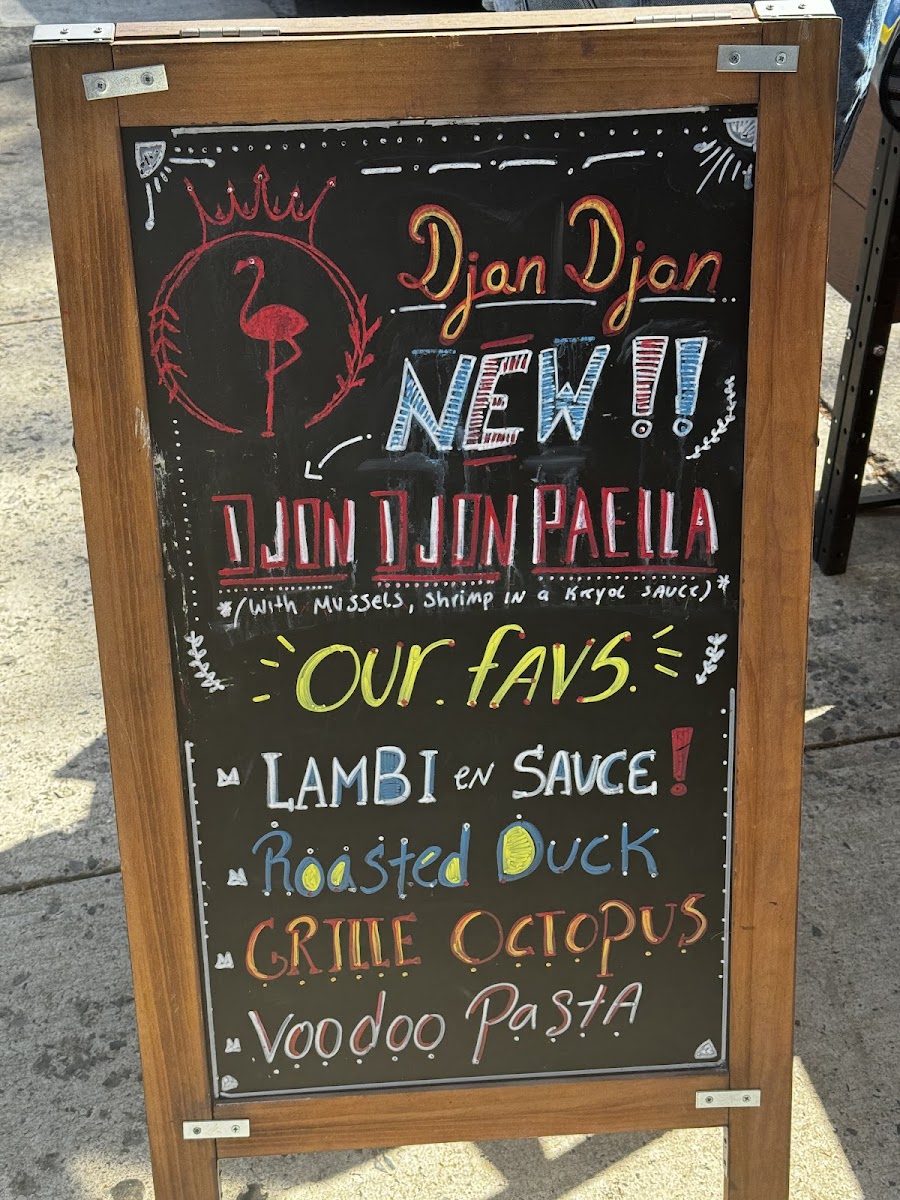 Djan Djan
NEW !!
DJON DJON PAELLA
*(With Mussels, Shrimp IN a Kryol SAUCE)*
OUR. FAVS.
LAMBI EN SAUCE!
Roasted Duck
GRILLE OCTOPUS
Voodoo Pasta